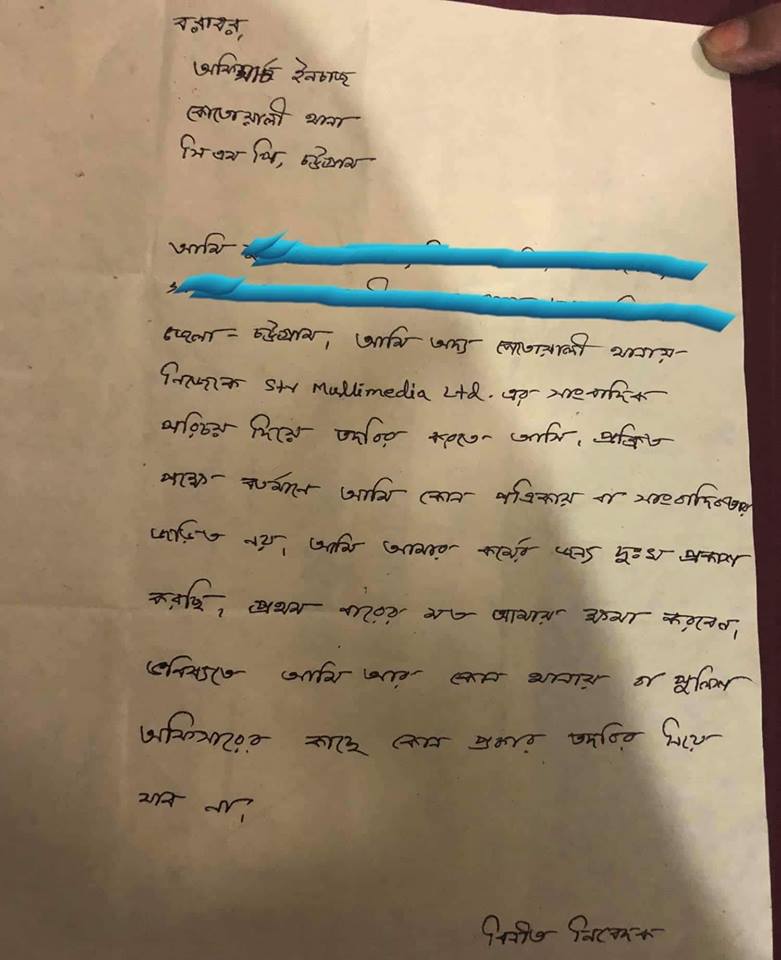 বরাবর,
অফিসার্চ ইনচাজ
কোতোয়ালী থানা
সি এম পি, চট্টগ্রাম
আমি
জেলা - চট্টগ্রাম, আমি অদ্য কোতোয়ালী থানায়
নিজেকে Stv Multimedia Ltd. এর সাংবাদিক
পরিচয় দিয়ে তদবির করতে আসি, প্রকিত
পক্ষে বর্তমানে আমি কোন পত্রিকায় বা সাংবাদিকতায়
জড়িত নয়, আমি আমার কর্মের জন্য দুঃখ প্রকাশ
করছি, প্রথম বারের মত আমায় ক্ষমা করবেন,
ভবিষ্যতে আমি আর কোন থানায় বা পুলিশ
অফিসারের কাছে কোন প্রকার তদবির নিয়ে
যাব না,
বিনীত নিবেদক